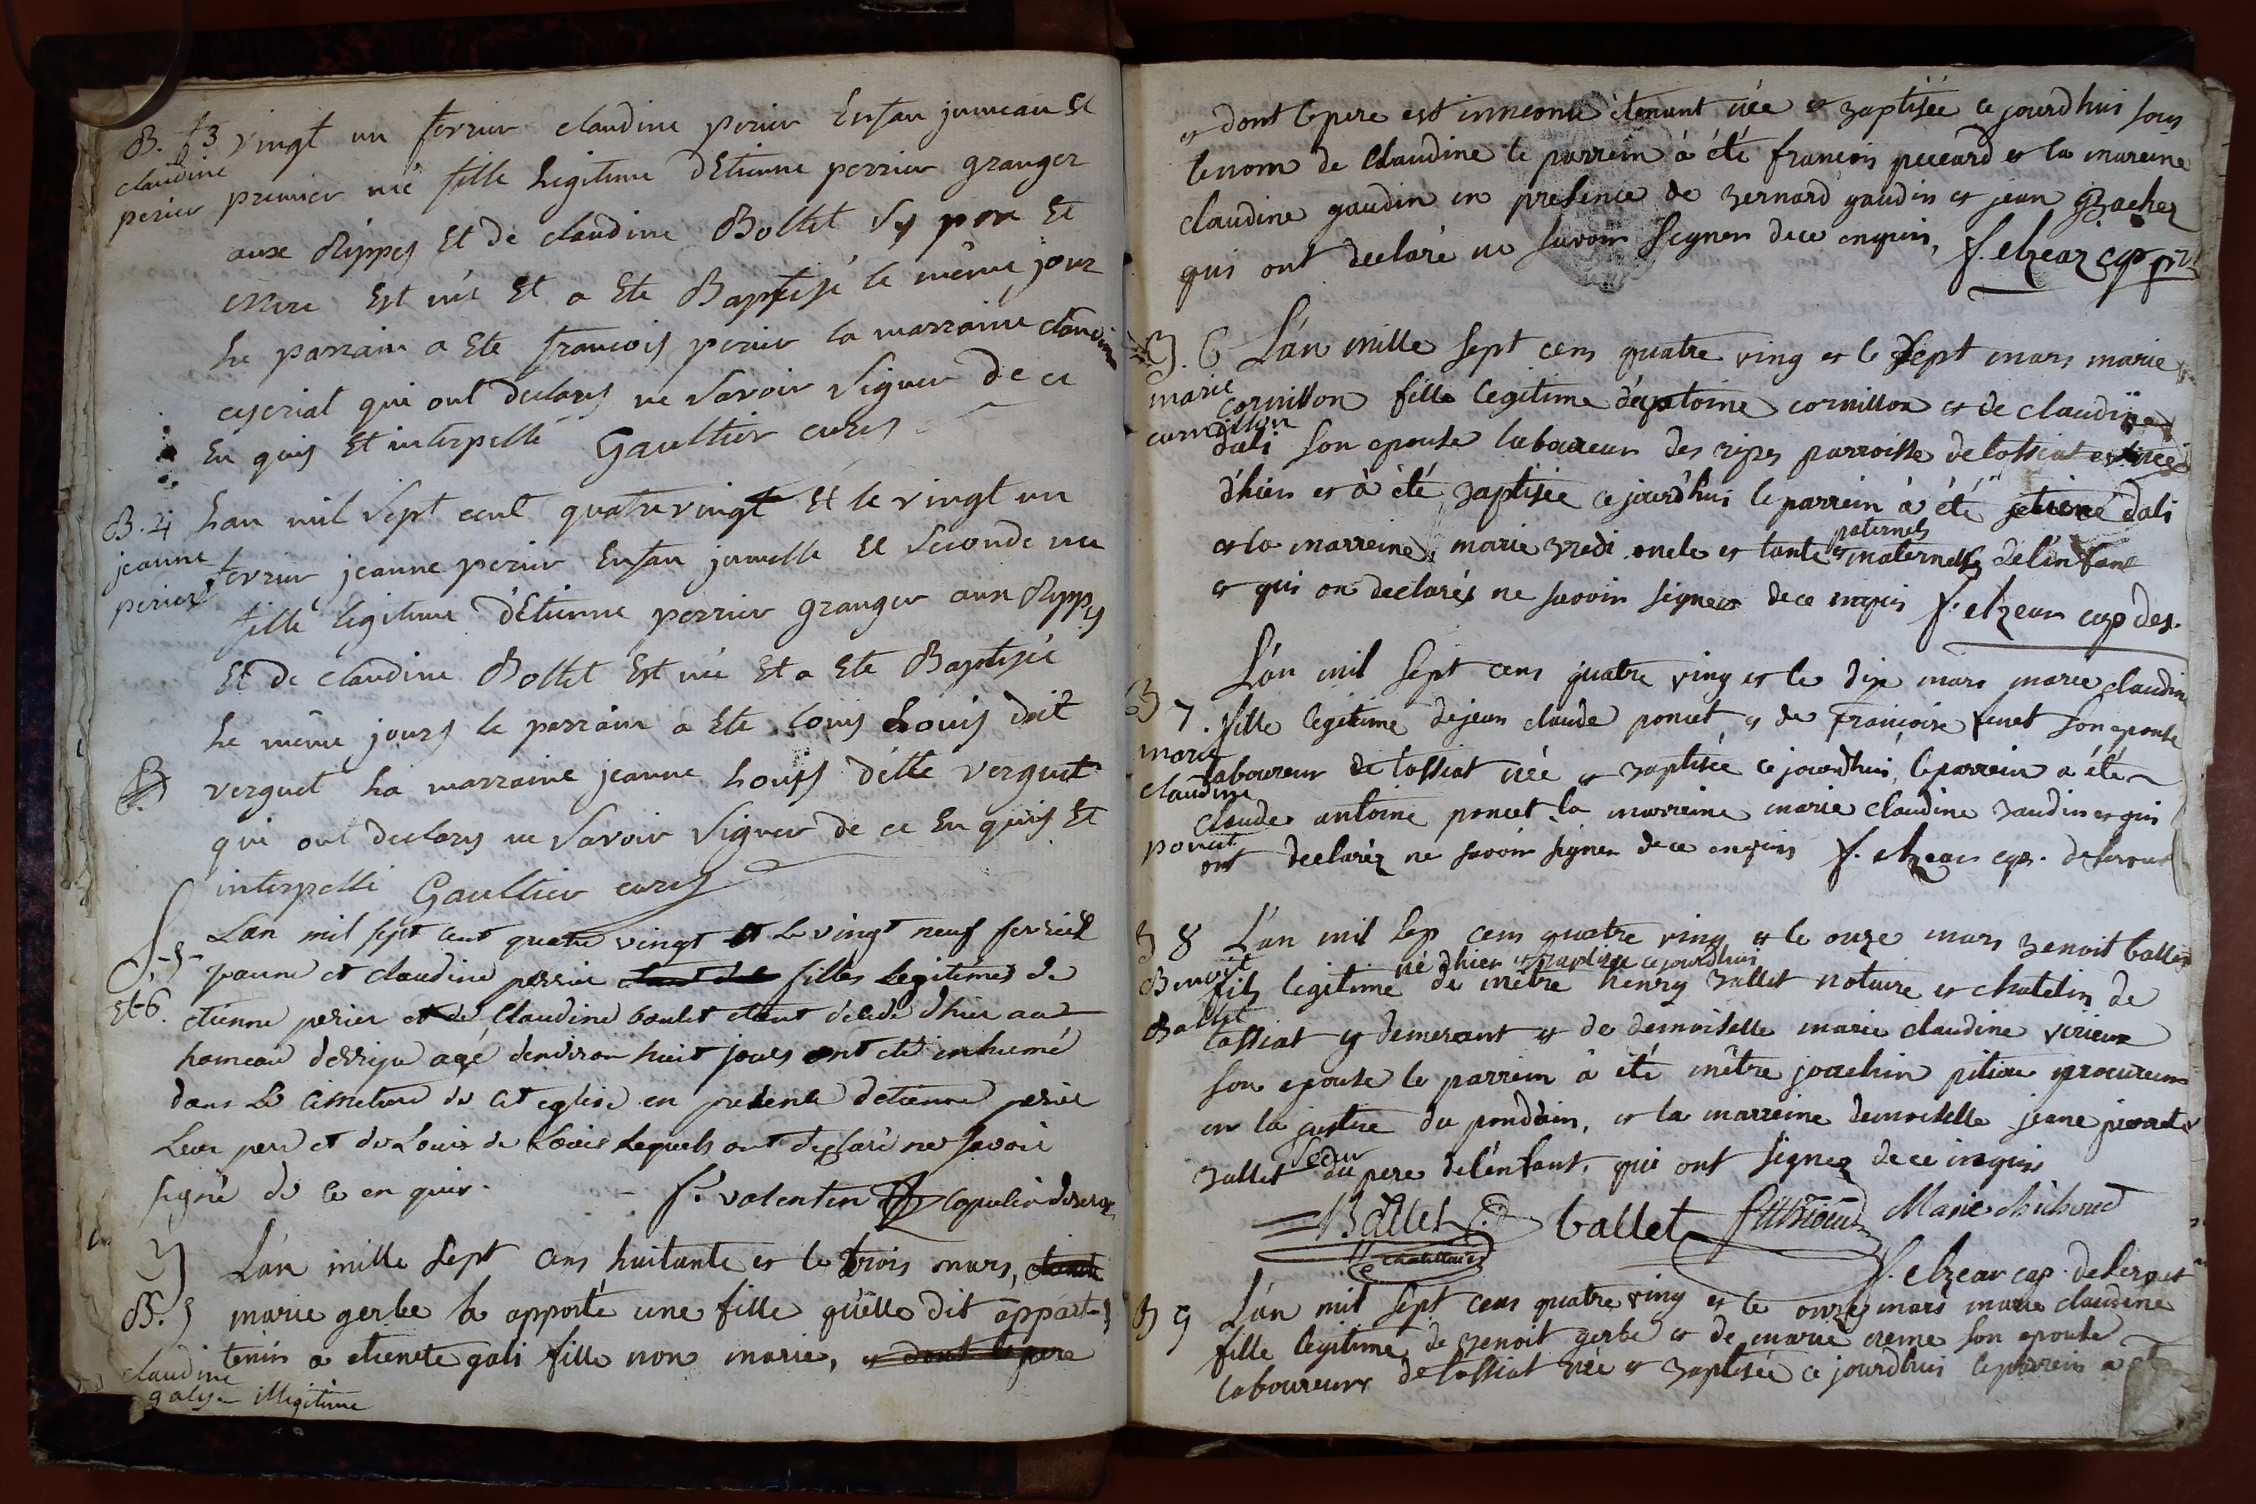 B. 3 vingt un fevrier claudine perier Enfan jumeau Et
claudine
perier
premier née fille Legitime d'Etienne perrier granger
aux Rippes Et de claudine Bollet Ses pere Et
Mere Est née Et a Ete Baptisé le même jour
Le parrain a Ete francois perier la marraine claudine
qui ont declarés ne Savoir Signer de ce
En quis Et interpellé Gaultier curés
B. 4
jeanne
perier
Lan mil Sept cent quatrevingt Et le vingt un
fevrier jeanne perier Enfan jumelle Et Seconde née
fille legitime d'Etienne perrier granger aux Rippes
Et De claudine Bollet Est née Et a Ete Baptisée
Le même jours le parrain a Ete louis Louis dit
verguet La marraine jeanne Louis ditte verguet
qui ont declarés ne Savoir Signer de ce En quis Et
interpellé Gaultier curés
S. 5
Et 6
Lan mil sept cent quatre vingt et Le vingt neuf fevrier
jeanne et claudine perrier filles Legitimes de
etienne perier et de Claudine boulet etant décédé d'hier au
hameau derripe agé denviron huit jours ont eté enhumé
dans Le Cimetiere de cet eglise en presence detienne perier
Leur pere et de Louis de Louis Lequels ont declaré ne Savoir
signé de ce en quis. f. valentin capucin deservt
B. 5
claudine
galy illegitime
L'an mille Sept cens huitante et le trois mars,
marie gerbe a apporté une fille qu'elle dit appart-
tenir a etienete gali fille non marié, et dont le pere
et dont le pere est inneconu étenant née et baptisée ce jourdhui sous
le nom de Claudine le parrein à été francois peccard et la mareine
claudine gaudin en presence de bernard gaudin et jean Bachez
qui ont declaré ne savoir Signer dece enquis, f. elzear cap pr
B. 6
marie
cornillon
L'an mille Sept cens quatre ving et le Sept mars marie
cornillon fille legitime d'antoine cornillon et de claudine
dali son epouse laboureur des ripes parroisse de lossiat et née
d'hier et à été baptisée ce jourd'hui le parrein à été etiene dali
et la marreine marie bredi oncle et tante paternels et maternels de l'infant
et qui on declarés ne savoir signer dece enquis f. elzear cap des.
B 7.
marie
claudine
poncet
L'an mil Sept cens quatre ving et le dix mars marie claudine
fille legitime de jean claude poncet et de francoise venet son epouse
laboureur de lossiat née et baptisée ce jourdhui, le parrein a été
claude antoine poncet la marreine marie claudine baudin et qui
ont declaréz ne savoir signer dece enquis f. elzear cap. deservant
B 8
Benoit
Ballet
L'an mil Sep cens quatre ving et le onze mars benoit ballet
né d'hier et baptisé ce jourdhui
fils legitime de mètre henry ballet notaire et chatelin de
lossiat y demerant et de demoiselle marie claudine verieux
son epouse le parrein à été mêtre joachin pitiou procureur
en la justice du pondain, et la marreine demoiselle jeane pierrete
ballet soeur du pere de l'énfant, qui ont signez de ce inquis
Ballet ballet Marie chichoud
chatellain
f. elzear cap. deservt
B 9
L'an mil Sept cens quatre ving et le onze mars marie claudine
fille legitime de benoit gerbe et de marie creme son epouse
laboureurs de lossiat née et baptisée ce jourdhui le parrein a été